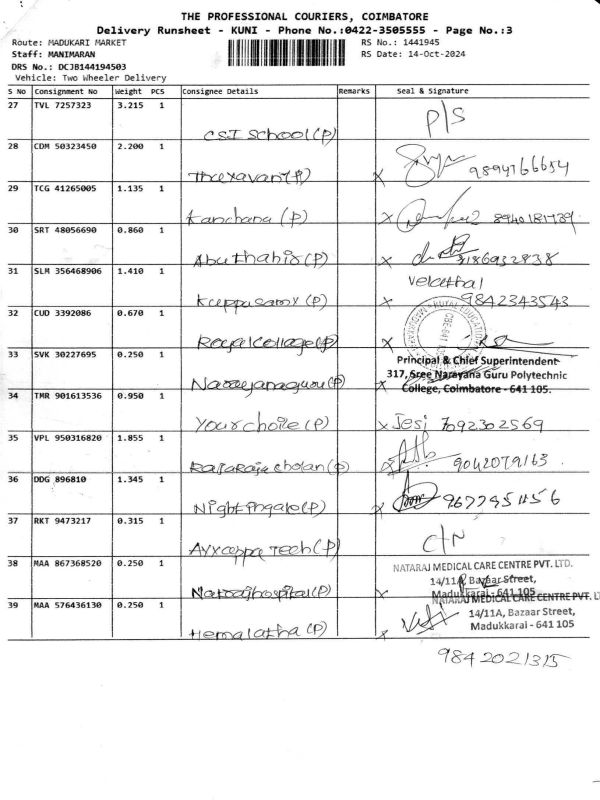 THE PROFESSIONAL COURIERS, COIMBATORE
Delivery Runsheet - KUNI - Phone No.:0422-3505555 - Page No.:3
Route: MADUKARI MARKET RS No.: 1441945
Staff: MANIMARAN RS Date: 14-Oct-2024
DRS No.: DCJB144194503
Vehicle: Two Wheeler Delivery
S No Consignment No Weight PCS Consignee Details Remarks Seal & Signature
27 TVL 7257323 3.215 1
CSI School (P) P/S
28 CDM 50323450 2.200 1
(P) X 9894766654
29 TCG 41265005 1.135 1
Kanchana (P) X 8940181739
30 SRT 48056690 0.860 1
Abuthahir (P) X
31 SLM 356468906 1.410 1 Velathal
Kuppusamy (P) X 9842343543
32 CUD 3392086 0.670 1
Royal college (P)
33 SVK 30227695 0.250 1 Principal & Chief Superintendent
317, Sree Narayana Guru Polytechnic
Narayanaguru (P) X College, Coimbatore - 641 105.
34 TMR 901613536 0.950 1
Your choile (P) X Jesi 7092302569
35 VPL 950316820 1.855 1
Rajaraja cholan (P) X 9042079163
36 DDG 896810 1.345 1
Nightingale (P) X
37 RKT 9473217 0.315 1
Ayyappa Tech (P) C/N
38 MAA 867368520 0.250 1 NATARAJ MEDICAL CARE CENTRE PVT. LTD.
14/11A, Bazaar Street,
Natrajhospital (P) X Madukkarai - 641 105
39 MAA 576436130 0.250 1 NATARAJ MEDICAL CARE CENTRE PVT. L
14/11A, Bazaar Street,
Hemalatha (P) X Madukkarai - 641 105
9842021315